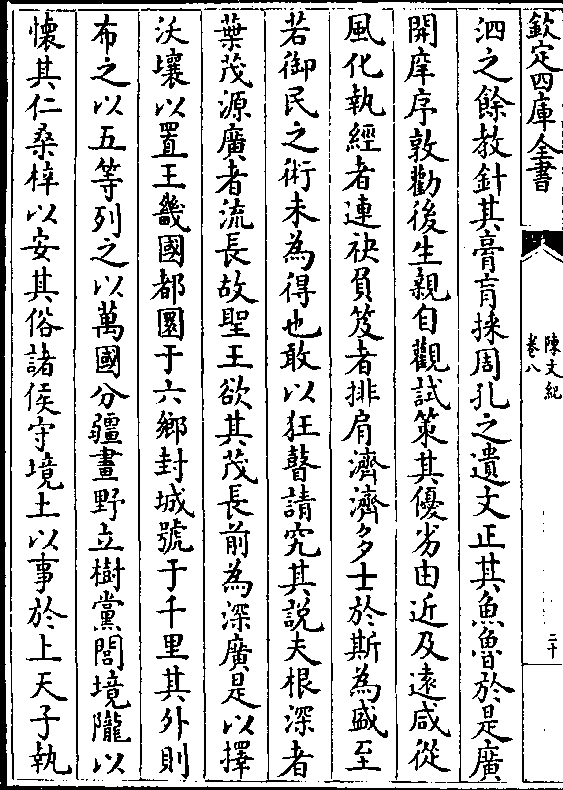 欽定四庫全書
陳文紀
卷八
二十
泗之餘教針其膏肓採周孔之遺文正其魚魯於是廣
開庠序敦勸後生親自觀試策其優劣由近及遠咸從
風化執經者連袂負笈者排肩濟濟多士於斯為盛至
若御民之術未為得也敢以狂瞽請究其説夫根深者
葉茂源廣者流長故聖王欲其茂長前為深廣是以擇
沃壤以置王畿國都圜于六鄉封城號于千里其外則
布之以五等列之以萬國分疆畫野立樹黨閭境隴以
懷其仁桑梓以安其俗諸侯守境土以事於上天子執